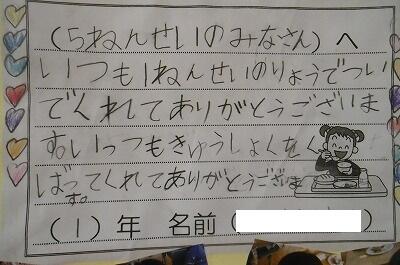 (5ねんせいのみなさん)へ
いつも1ねんせいのりょうでつい
でくれてありがとうございま
す。いっつもきゅうしょくをく
ばってくれてありがとうございま
す。
(1)年 名前( )